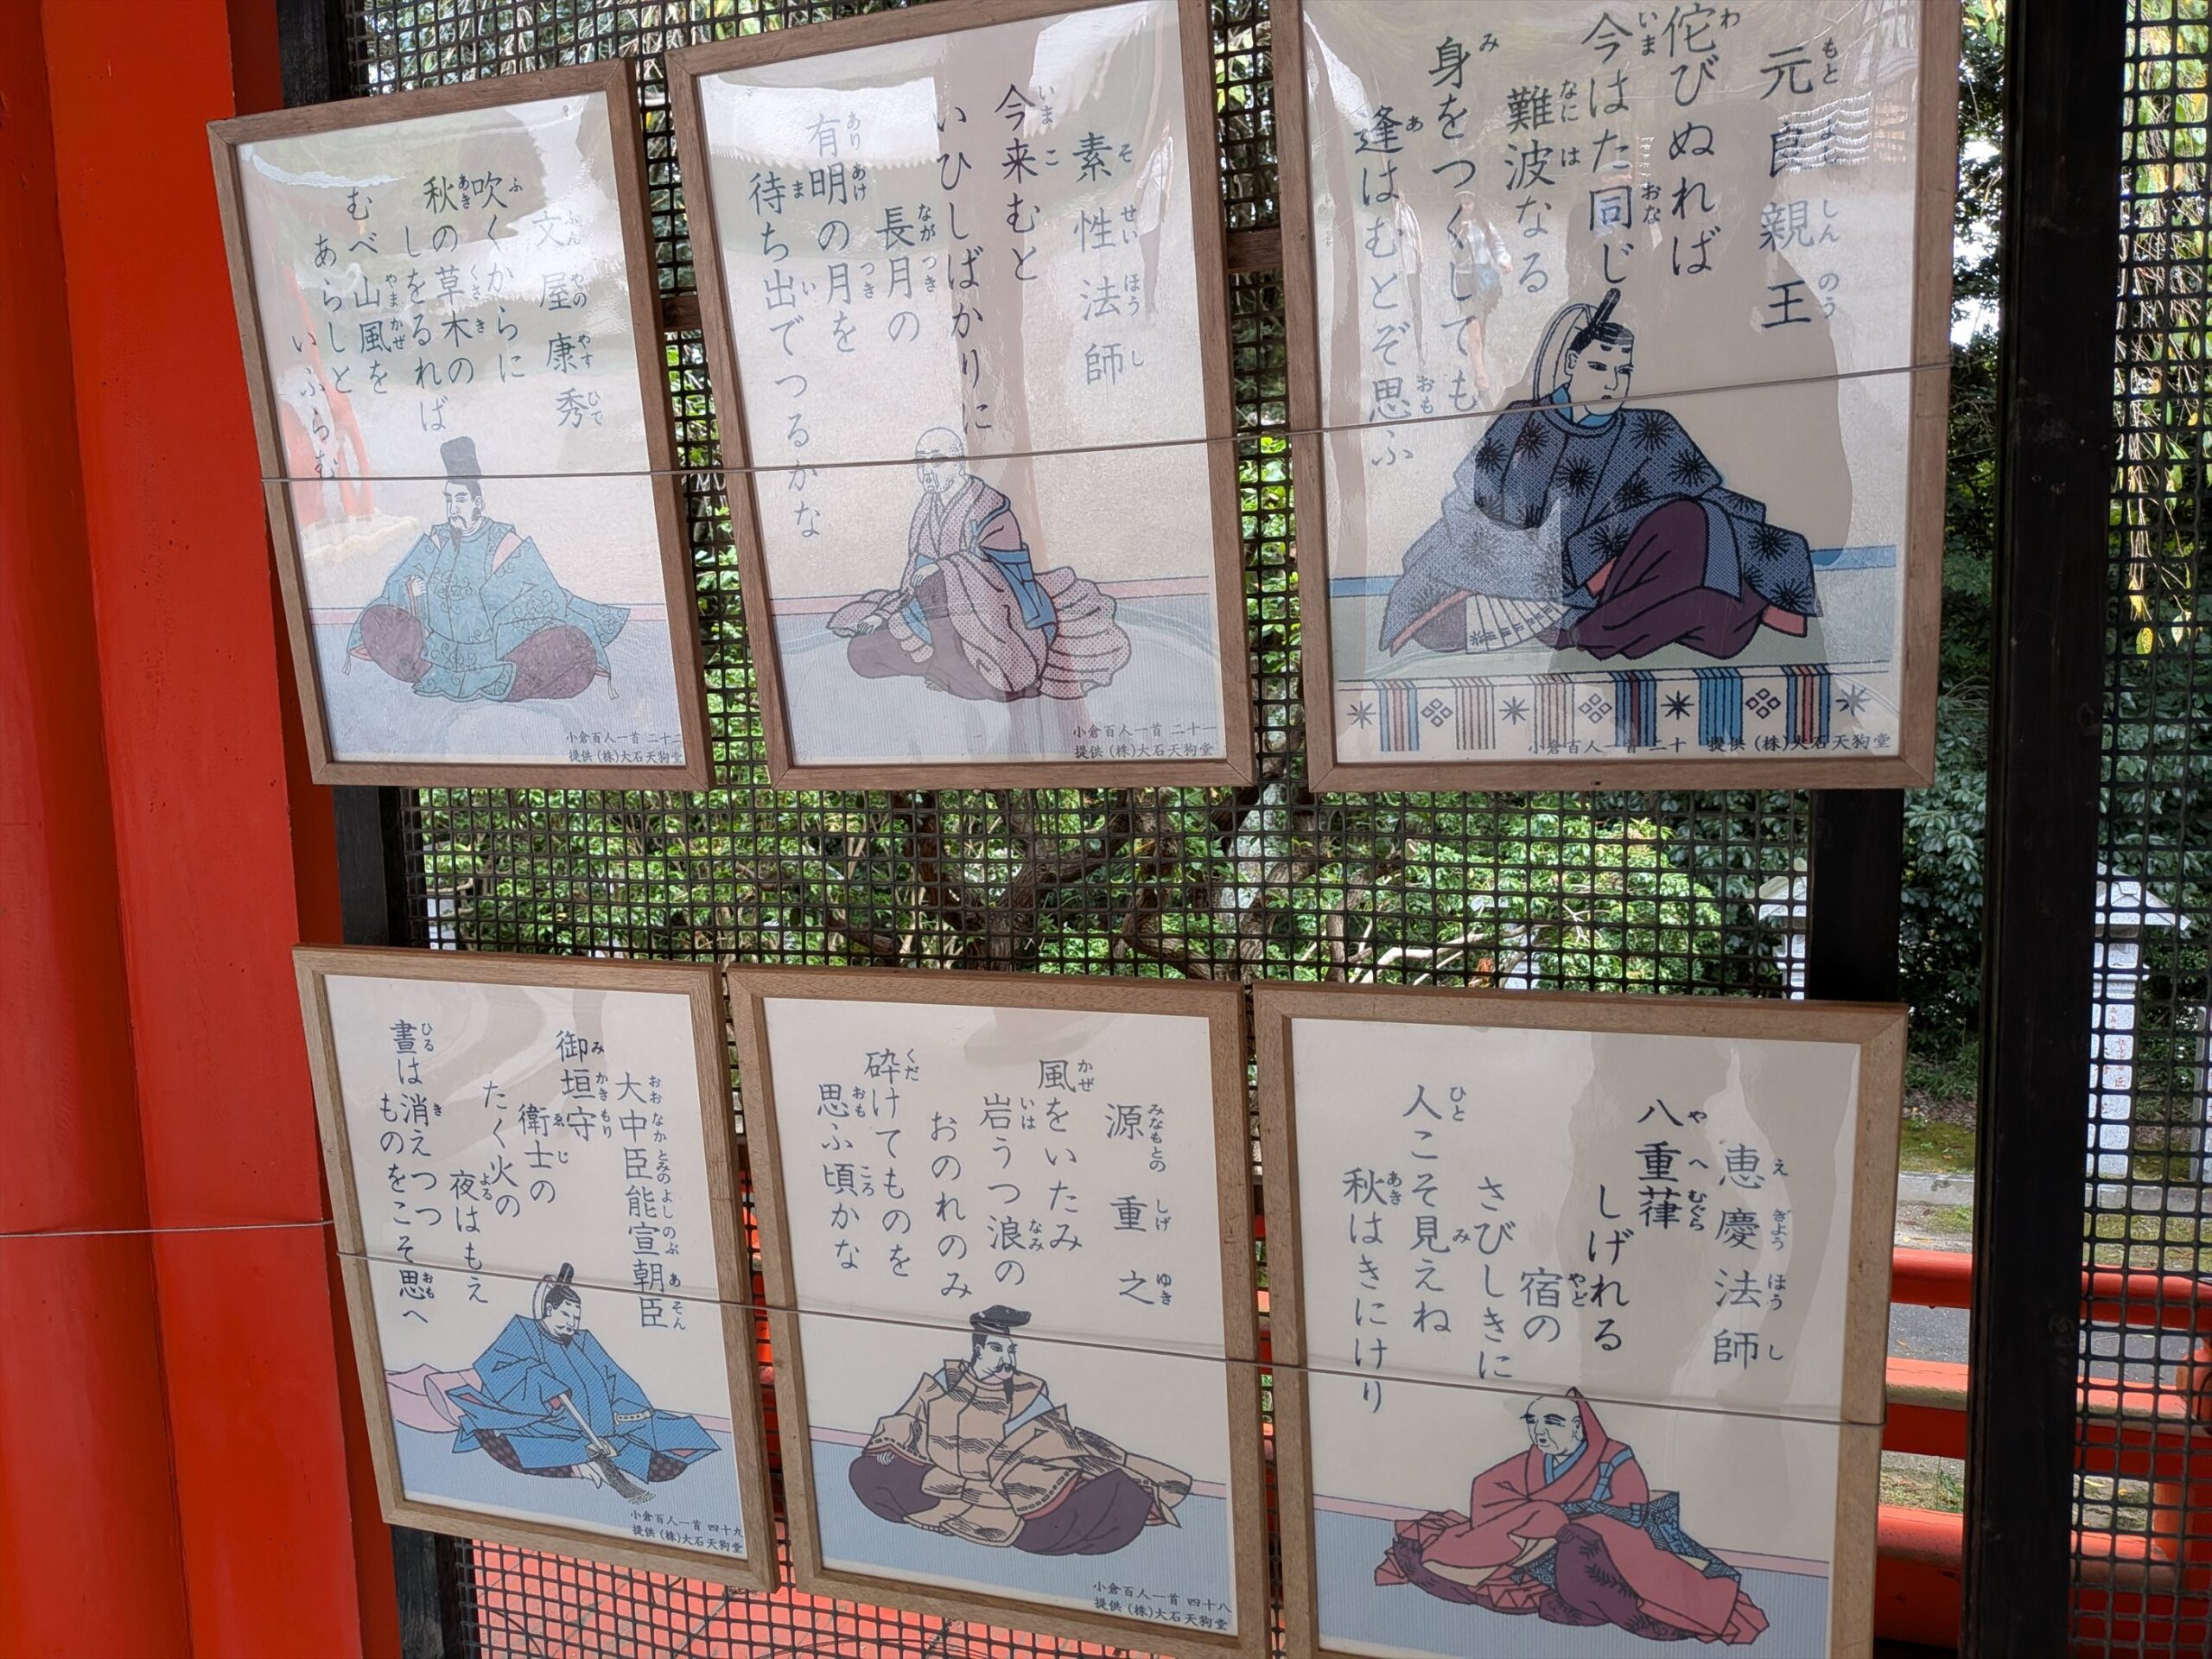 元良親王
侘びぬれば
今はた同じ
難波なる
身をつくしても
逢はむとぞ思ふ
小倉百人一首 二十 提供 (株)大石天狗堂
素性法師
今来むと
いひしばかりに
長月の
有明の月を
待ち出でつるかな
小倉百人一首 二十一
提供 (株)大石天狗堂
文屋康秀
吹くからに
秋の草木の
しをるれば
むべ山風を
あらしと
いふらむ
小倉百人一首 二十二
提供 (株)大石天狗堂
恵慶法師
八重葎
しげれる
宿の
さびしきに
人こそ見えね
秋はきにけり
源重之
風をいたみ
岩うつ浪の
おのれのみ
砕けてものを
思ふ頃かな
小倉百人一首 四十八
提供 (株)大石天狗堂
大中臣能宣朝臣
御垣守
衛士の
たく火の
夜はもえ
晝は消えつつ
ものをこそ思へ
小倉百人一首 四十九
提供 (株)大石天狗堂